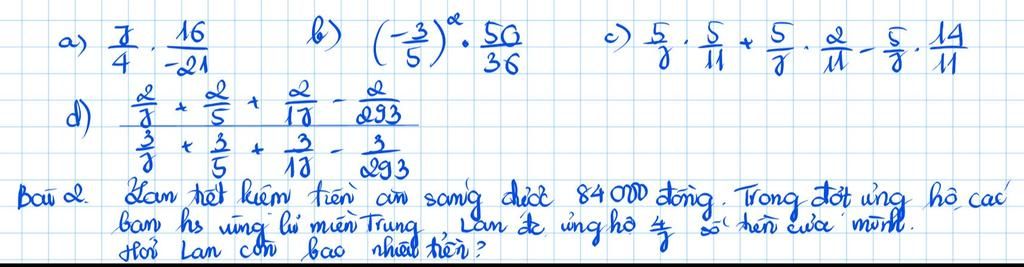 a) 7/4 · 16/-21 b) (-3/5)² · 50/36 c) 5/7 · 5/11 + 5/7 · 2/11 - 5/7 · 14/11
d) (2/7 + 2/5 + 2/17 - 2/293)/(3/7 + 3/5 + 3/17 - 3/293)
Bài 2. Lan tiết kiệm tiền ăn sáng được 84 000 đồng. Trong đợt ủng hộ các
bạn hs vùng lũ miền Trung Lan đc ủng hộ 4/7 số tiền của mình.
Hỏi Lan còn bao nhiêu tiền?